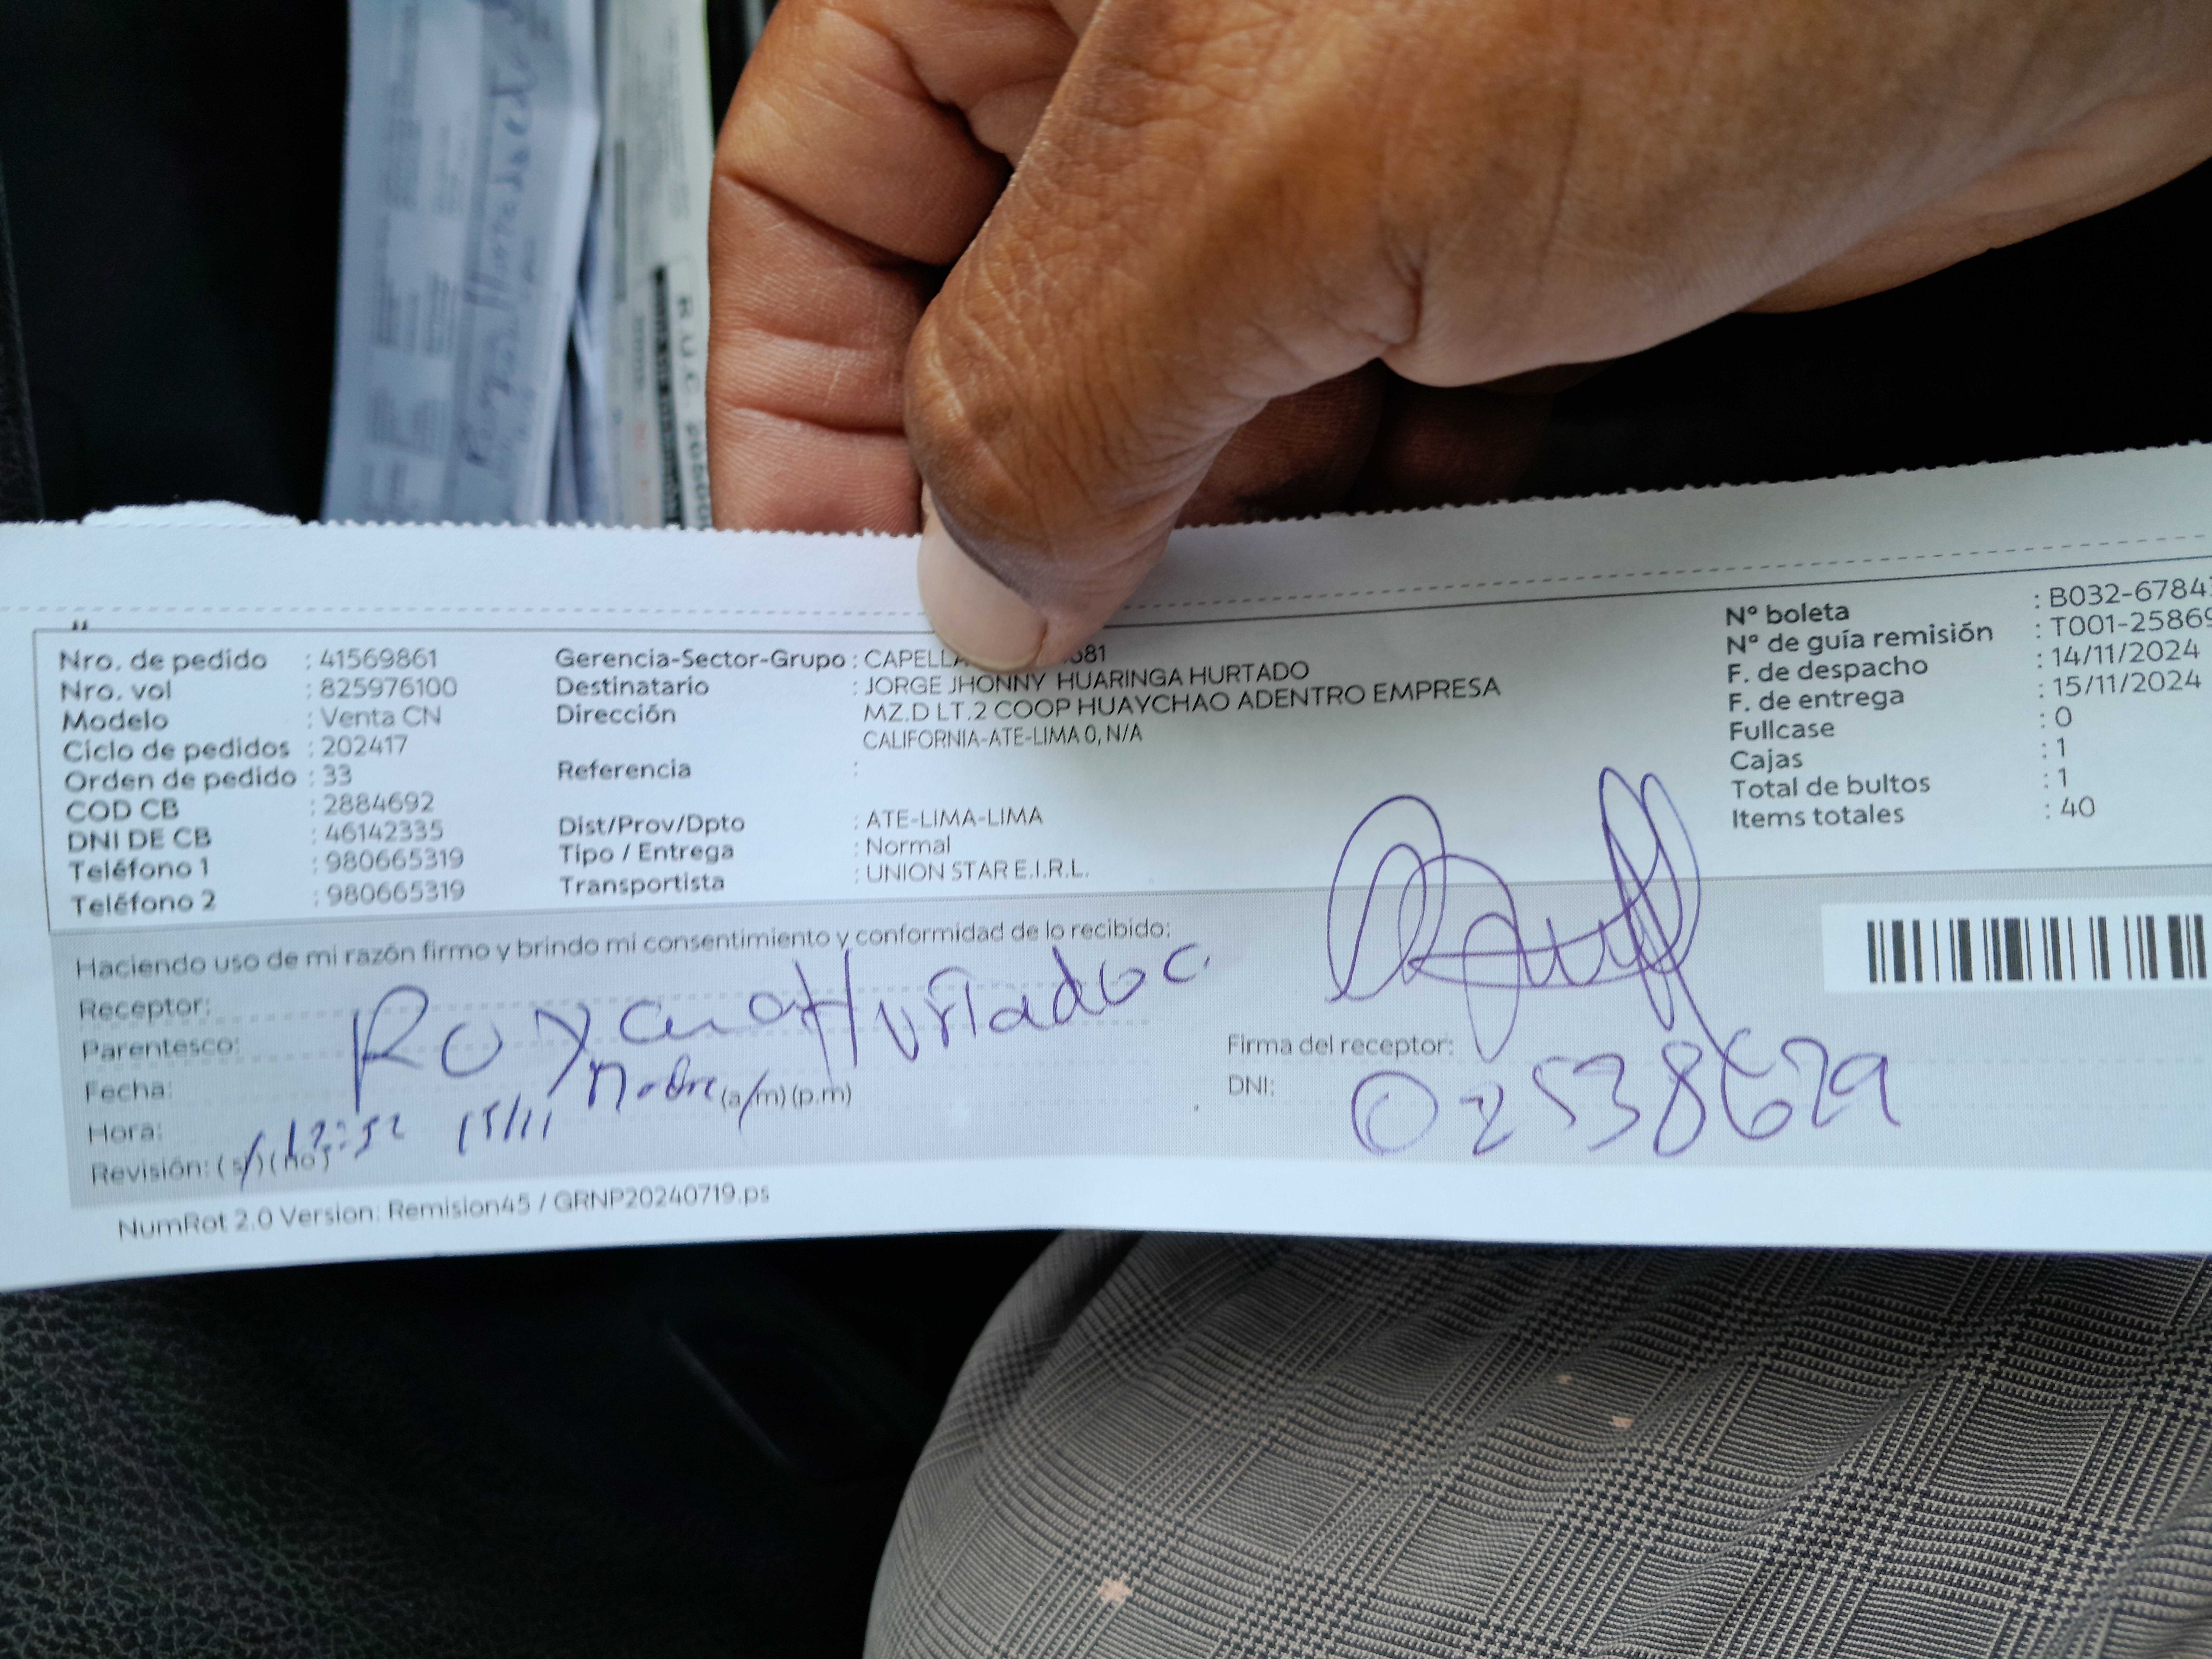 Nro. de pedido : 41569861
Nro. vol : 825976100
Modelo : Venta CN
Ciclo de pedidos : 202417
Orden de pedido : 33
COD CB : 2884692
DNI DE CB : 46142335
Teléfono 1 : 980665319
Teléfono 2 : 980665319
Gerencia-Sector-Grupo : CAPELLA 681
Destinatario : JORGE JHONNY HUARINGA HURTADO
Dirección : MZ.D LT.2 COOP HUAYCHAO ADENTRO EMPRESA
CALIFORNIA-ATE-LIMA 0, N/A
Referencia :
Dist/Prov/Dpto : ATE-LIMA-LIMA
Tipo / Entrega : Normal
Transportista : UNION STAR E.I.R.L.
Nº boleta : B032-6784
Nº de guía remisión : T001-25869
F. de despacho : 14/11/2024
F. de entrega : 15/11/2024
Fullcase : 0
Cajas : 1
Total de bultos : 1
Items totales : 40
Haciendo uso de mi razón firmo y brindo mi consentimiento y conformidad de lo recibido:
Receptor:
Parentesco:
Fecha:
Hora: (a/m) (p.m)
Revisión: (si) (no)
Hurtado c.
12:52 15/11
Firma del receptor:
DNI: 02538629
NumRot 2.0 Version: Remision45 / GRNP20240719.ps
R.U.C.